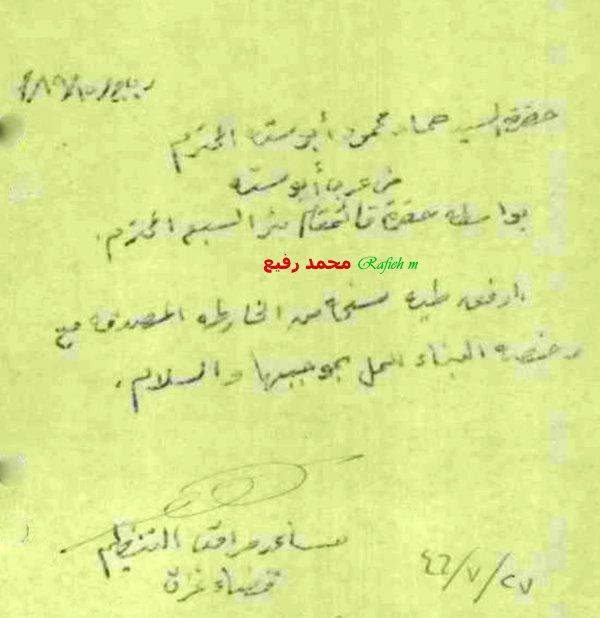 حضرة السيد حماد محمود أبوسته المحترم
من عرب أبوسته
بواسطة حضرة قائمقام بئر السبع المحترم.
محمد رفيع Rafieh m
ارفق طيه نسخة من الخارطه المصدقه مع
رخصة البناء للعمل بموجبها والسلام.
مساعد مراقب التنظيم
قضاء غزة
٤٦/٧/٢٧